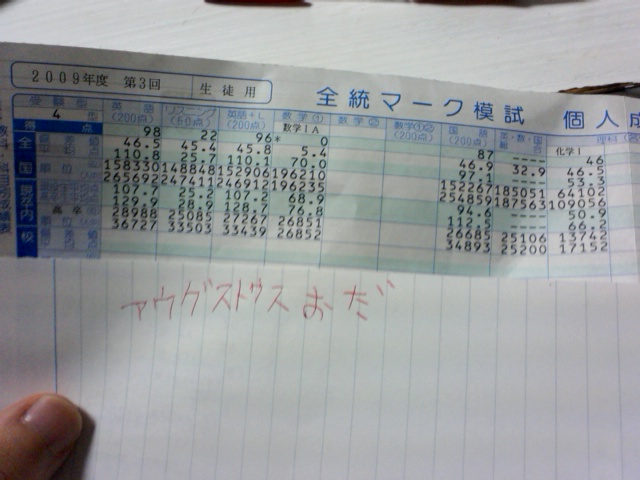 2009年度 第3回 生徒用 全統マーク模試 個人成
受験型 英語 リスニング 英語+L 数学① 数学② 数学①② 国語 英・数・国 理科
4型 (200点) (50点) (200点) 数学ⅠA (200点) (200点) 化学Ⅰ
得点 98 22 96 * 0 87 ---- 46
46.5 45.4 45.8 5.4 46.9 32.9 46.5
110.8 25.7 110.1 70.1 97.1 ---- 53.3
158350 148848 152906 196210 152267 185051 64102
265962 247411 246912 196235 254859 187563 109056
107.2 107.2 68.9 94.6 ---- 50.9
129.9 28.9 128.7 76.8 112.5 ---- 66.2
28988 25085 27267 26851 26685 25106 13742
36727 33503 33439 26852 34893 25200 17152
アウグストゥス おだ